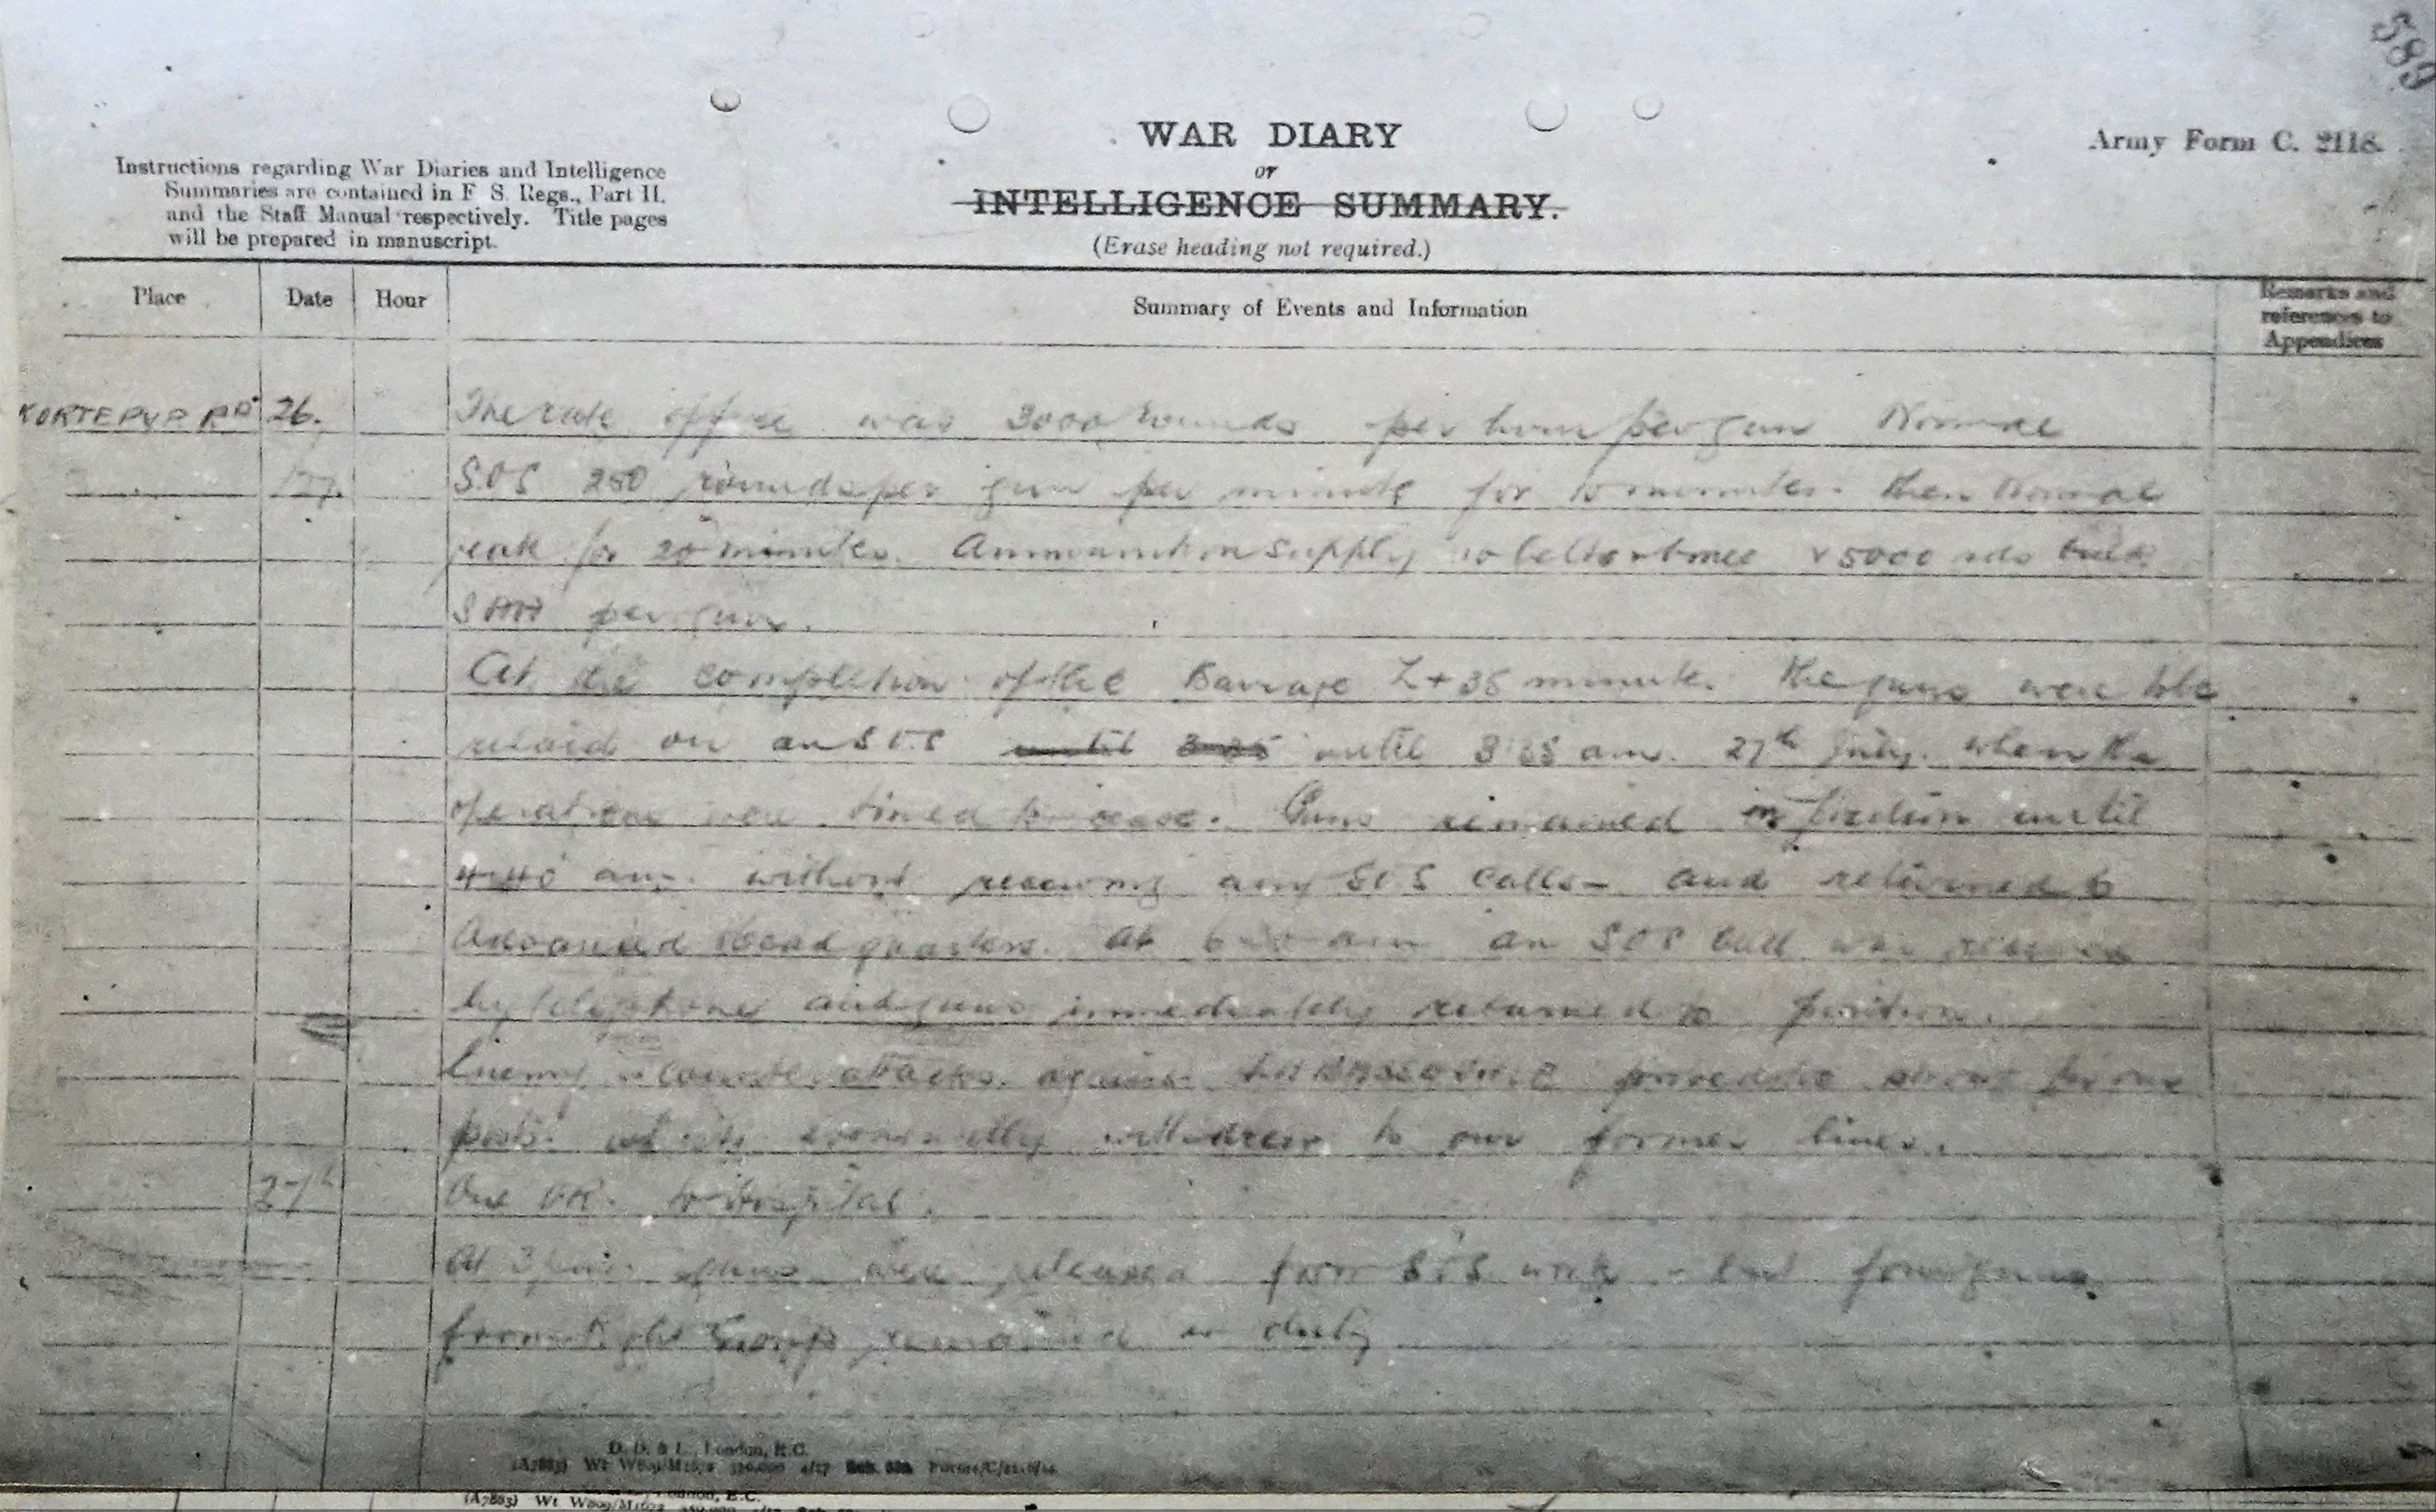 583
WAR DIARY
or
INTELLIGENCE SUMMARY.
(Erase heading not required.)
Army Form C. 2118.
Instructions regarding War Diaries and Intelligence
Summaries are contained in F. S. Regs., Part II.
and the Staff Manual respectively. Title pages
will be prepared in manuscript.
Place Date Hour Summary of Events and Information Remarks and
references to
Appendices
KORTEPYP RD 26. The rate of fire was 3000 rounds per hour per gun Normal
27. S.O.S 250 rounds per gun per minute for 10 minutes. then Normal
rate for 20 minutes. Ammunition Supply 10 belts & 5000 rds bulk
SAA per gun.
At the completion of the Barrage Z+35 minute. the guns were to be
relaid on an S.O.S until until am. 27th July. when the
operations were timed to cease. Guns remained in position until
4.40 am. without receiving any S.O.S calls - and returned to
Advanced Headquarters. At am an SOS call was received
by telephone and guns immediately returned to position.
Enemy counter attacks against proved too strong for our
posts which eventually withdrew to our former lines.
27th One OR. to Hospital.
At 3 pm. guns were released from S.O.S work - but four guns
from Right Group remained on duty
D. D. & L., London, E.C.
(A7883) Wt W809/M1672 350,000 4/17 Sch. 52a Forms/C/2118/14
London, E.C.
(A7883) Wt W809/M1672